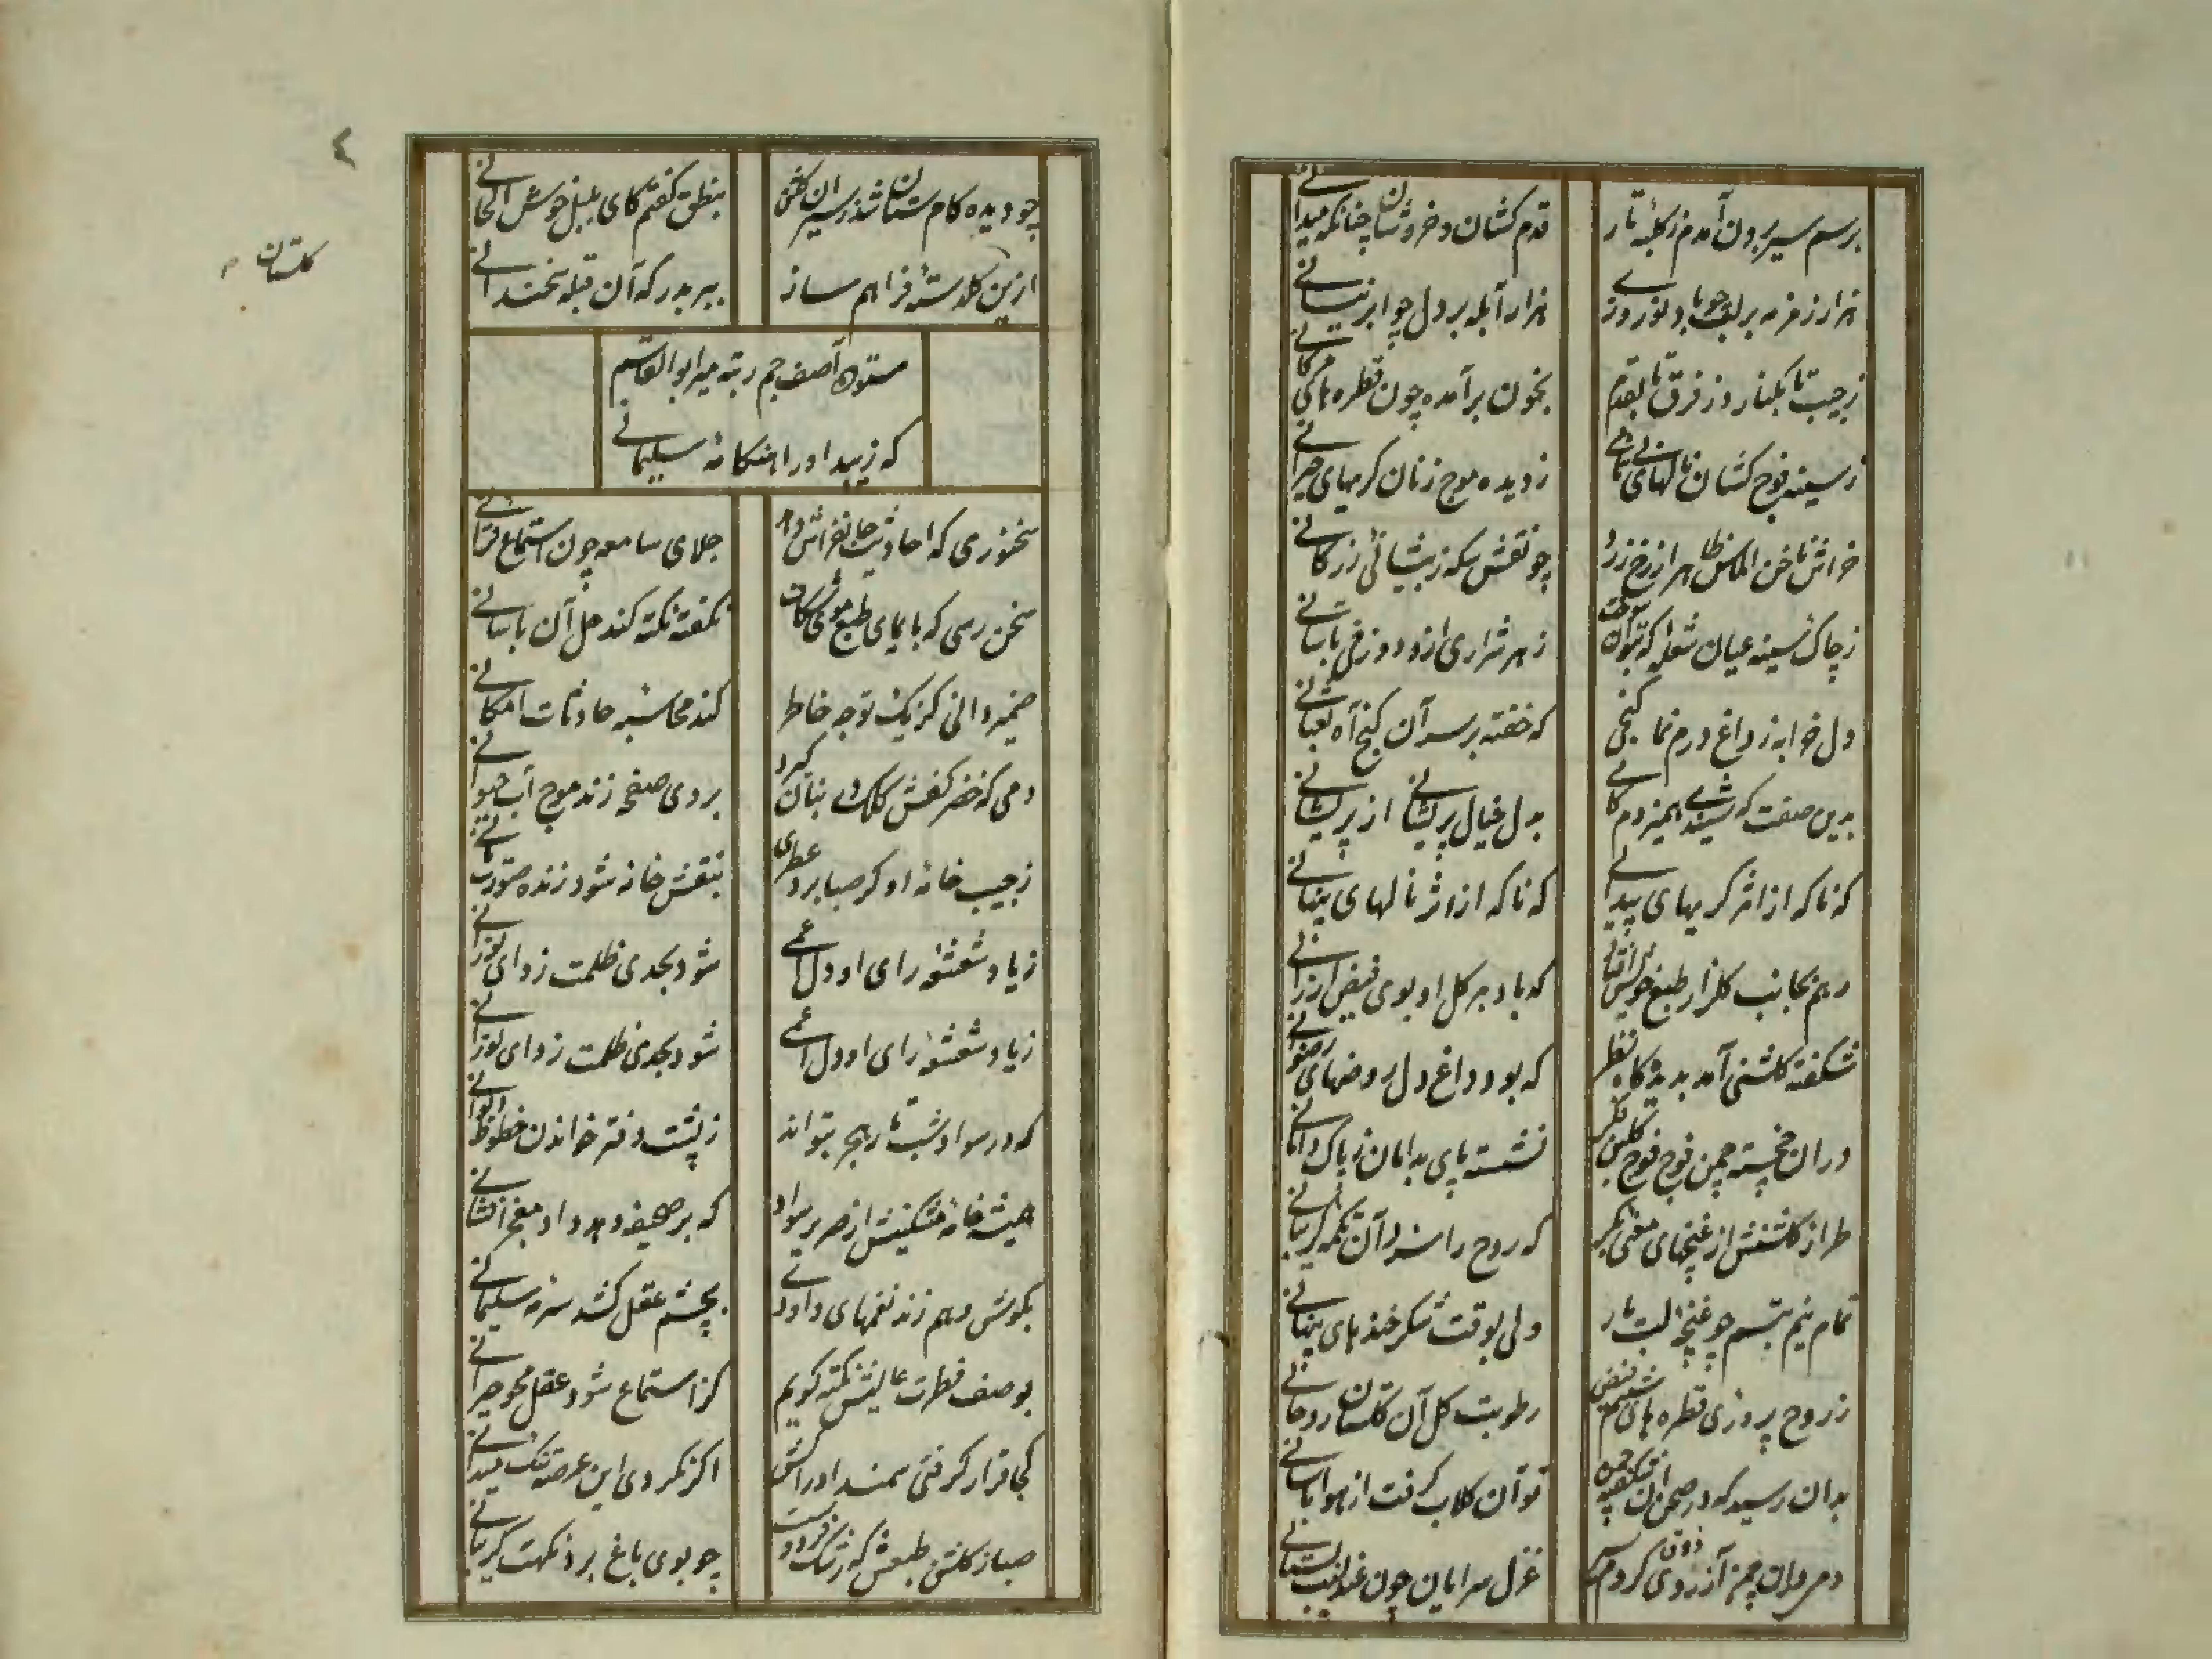 برسم سیر برون آمدم ز کلبهٔ تار
قدم کشان و خروشان چنانکه میدانی
هزار زمزمه بر لب چو باد نوروزی
هزار آبله بر دل چو ابر نیسانی
ز جیب تا بکنار و ز فرق تا بقدم
بخون برآمده چون قطره های مژگانی
ز سینه فوج کشان نالهای
ز دیده موج زنان کریهای حیرانی
خراش ناخن الماس ظاهر از رخ زرد
چو نقش سکه ز پیشانی زر کانی
ز چاک سینه عیان شعلهٔ که بتوان
ز هر شراری ازو دوزخی بآسانی
دل خرابه ز داغ درم نما کنجی
که خفته بر سر آن کنج آه ثعبانی
بدین صفت که شنیدی همیزدم کامی
بدل خیال پریشانی از پریشانی
که ناکه از اثر کریهای پیدائی
که ناکه از اثر نالهای پنهانی
رهم بجانب کلزار طبع خویش افتاد
که باد بر کل او بوی فیض ارزانی
شکفته کلشنی آمد بدیدکاه نظر
که بود داغ دل روضهای رضوانی
دران خجسته چمن فوج فوج کلبن فکر
نشسته پای بدامان ز پاک دامانی
طراز کلشنش از غنچهای معنی بکر
که روح را سزد آن تکمه کریبانی
تمام نیم تبسم چو غنچهٔ لب یار
ولی بوقت شکر خندهای پنهانی
ز روح پروری قطره های شبنم فیض
رطوبت کل آن کلستان روحانی
بدان رسید که در صحن آن شکفته چمن
توان کلاب کرفت از هوا بآسانی
دمی دران چمن آرزوی کردم سیر
غزل سرایان چون عندلیب بستانی
٤
چو دیده کام ستان شد ز سیر آن کلشن
بنطق کفتم کای بلبل خوش الحانی
ازین کلدستهٔ فراهم ساز
ببر بدرکه آن قبلهٔ سخندانی
کلستان
ستوده آصف جم رتبه میر ابوالقاسم
که زیبد او را هنکامهٔ سلیمانی
سخنوری که احادیث جانفزاش دهد
جلای سامعه چون استماع قرآنی
سخن رسی که بایمای طبع موی شکاف
نکفته نکته کند حل آن بآسانی
ضمیر دانی کز یک توجه خاطر
کند محاسبهٔ حادثات امکانی
دمی که خضر کفش کلک را بنان کردد
بروی صفحه زند موج آب حیوانی
ز جیب خانهٔ او کر صبا برد عطری
بنقش خانه شود زنده صورت مانی
ز یاد شعشعهٔ رای او دل اعمی
شود بحدی ظلمت زدای نورانی
ز یاد شعشعهٔ رای او دل اعمی
شود بحدی ظلمت زدای نورانی
که در سواد شب تار هجر بتواند
ز پشت دفتر خواندن خطوط دیوانی
همیشه خامهٔ مشکینش از صریر سواد
که بر صحیفه دهد داد معنی افشانی
بکوش وهم زند نغمهای داودی
بچشم عقل کشد سرمهٔ سلیمانی
بوصف فطرت عالیش نکته کویم
کز استماع شود عقل محو حیرانی
کجا قرار کرفتی سمند ادراکش
اکر نکردی این عرصه تنک میدانی
صبا ز کلشن طبعش که رشک فردوست
چو بوی باغ برد نکهت کریبانی